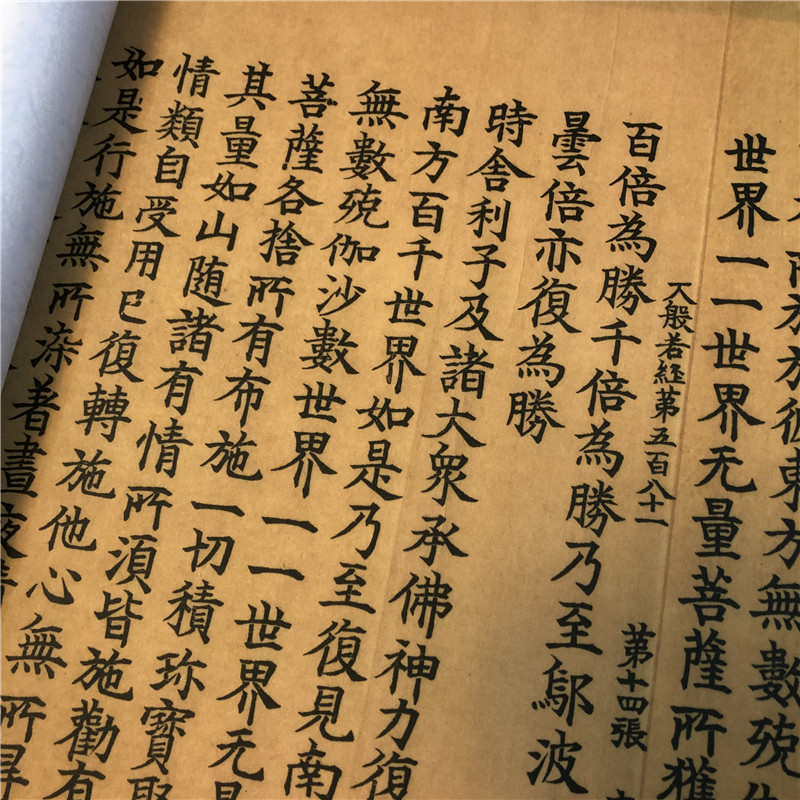 所承於彼東方無數殑
世界一一世界无量菩薩所獲
大般若經第五百八十一
第十四張
百倍為勝千倍為勝乃至鄔波
曇倍亦復為勝
時舍利子及諸大衆承佛神力復
南方百千世界如是乃至復見南
無數殑伽沙數世界一一世界无
菩薩各捨所有布施一切積珎寶聚
其量如山随諸有情所須皆施勸有
情類自受用已復轉施他心無所
如是行施無所染著晝夜